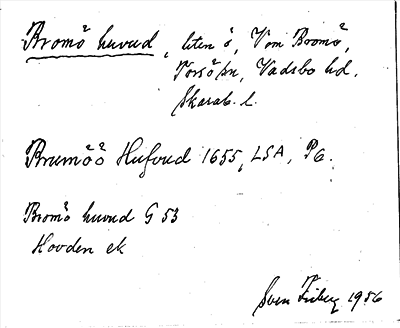 Bromö huvud, liten ö, V om Bromö,
Torsö sn, Vadsbo hd.
Skarab. l.
Brumöö Hufvud 1655, LSA, P6.
Bromö huvud G 53
Hovden ek
Sven Friberg 1956